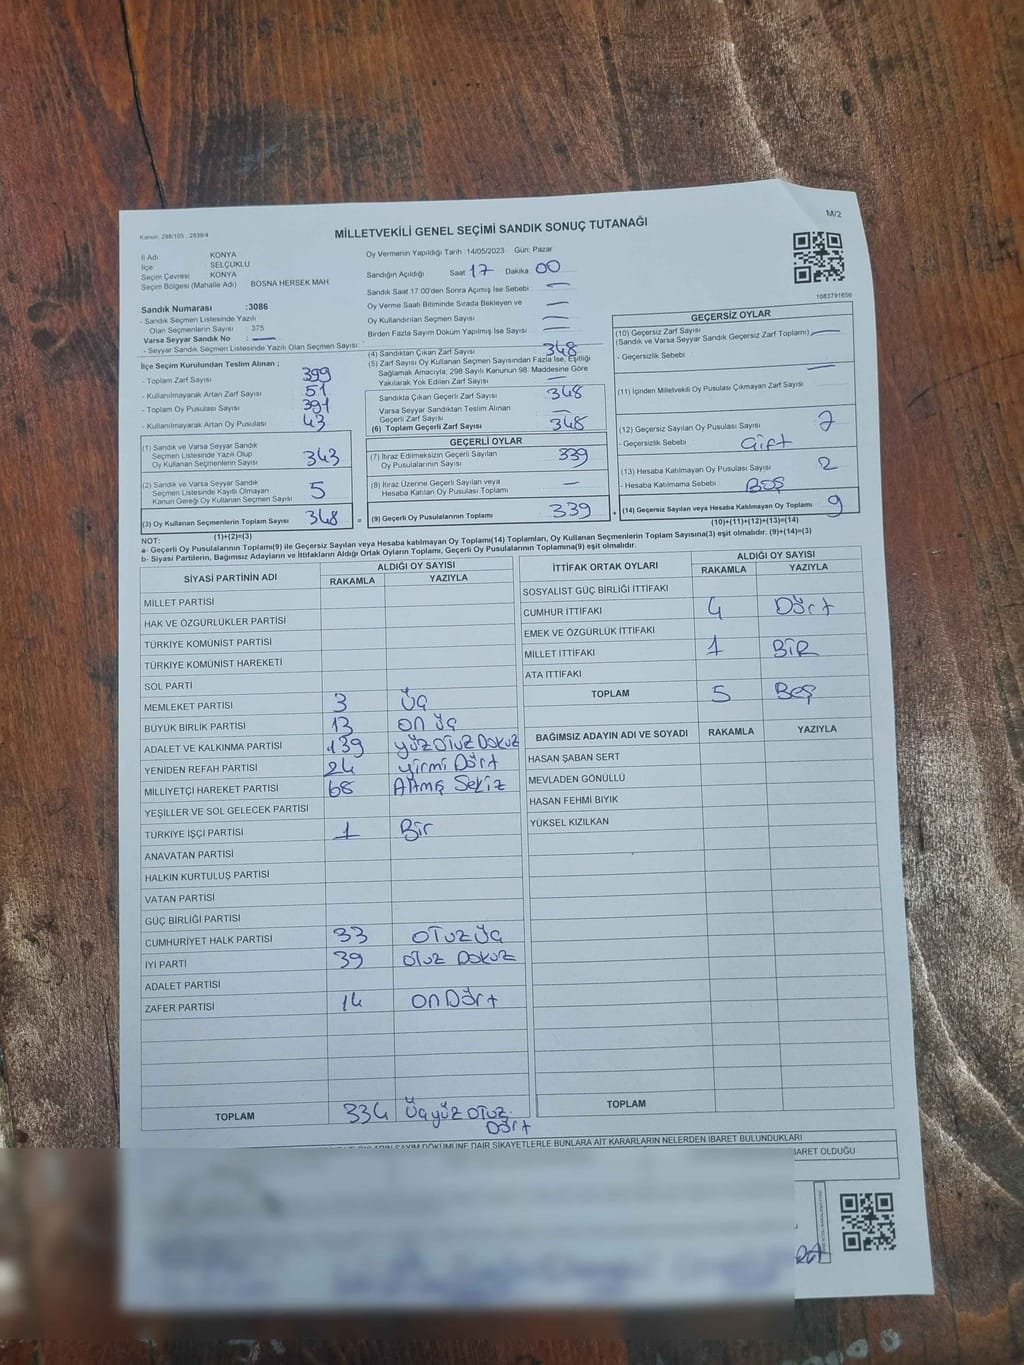 M/2
Kanun: 298/105 , 2839/4
MİLLETVEKİLİ GENEL SEÇİMİ SANDIK SONUÇ TUTANAĞI
İl Adı KONYA
İlçe SELÇUKLU
Seçim Çevresi KONYA
Seçim Bölgesi (Mahalle Adı) BOSNA HERSEK MAH
Oy Vermenin Yapıldığı Tarih :14/05/2023 Gün: Pazar
Sandığın Açıldığı Saat 17 Dakika : 00
Sandık Saat 17.00'den Sonra Açılmış İse Sebebi : —
Oy Verme Saati Bitiminde Sırada Bekleyen ve —
Oy Kullandırılan Seçmen Sayısı —
Birden Fazla Sayım Döküm Yapılmış İse Sayısı : —
1083791656
Sandık Numarası :3086
- Sandık Seçmen Listesinde Yazılı
Olan Seçmenlerin Sayısı : 375
Varsa Seyyar Sandık No : —
- Seyyar Sandık Seçmen Listesinde Yazılı Olan Seçmen Sayısı:
İlçe Seçim Kurulundan Teslim Alınan ;
- Toplam Zarf Sayısı 399
- Kullanılmayarak Artan Zarf Sayısı 51
- Toplam Oy Pusulası Sayısı 391
- Kullanılmayarak Artan Oy Pusulası 43
(1) Sandık ve Varsa Seyyar Sandık
Seçmen Listesinde Yazılı Olup
Oy Kullanan Seçmenlerin Sayısı 343
(2) Sandık ve Varsa Seyyar Sandık
Seçmen Listesinde Kayıtlı Olmayan
Kanun Gereği Oy Kullanan Seçmen Sayısı 5
(3) Oy Kullanan Seçmenlerin Toplam Sayısı 348 =
(1)+(2)=(3)
(4) Sandıktan Çıkan Zarf Sayısı 348
(5) Zarf Sayısı Oy Kullanan Seçmen Sayısından Fazla İse, Eşitliği
Sağlamak Amacıyla, 298 Sayılı Kanunun 98. Maddesine Göre
Yakılarak Yok Edilen Zarf Sayısı —
Sandıkta Çıkan Geçerli Zarf Sayısı 348
Varsa Seyyar Sandıktan Teslim Alınan
Geçerli Zarf Sayısı —
(6) Toplam Geçerli Zarf Sayısı 348
GEÇERLİ OYLAR
(7) İtiraz Edilmeksizin Geçerli Sayılan
Oy Pusulalarının Sayısı 339
(8) İtiraz Üzerine Geçerli Sayılan veya
Hesaba Katılan Oy Pusulası Toplamı —
(9) Geçerli Oy Pusulalarının Toplamı 339 +
GEÇERSİZ OYLAR
(10) Geçersiz Zarf Sayısı
(Sandık ve Varsa Seyyar Sandık Geçersiz Zarf Toplamı) —
- Geçersizlik Sebebi :
(11) İçinden Milletvekili Oy Pusulası Çıkmayan Zarf Sayısı —
(12) Geçersiz Sayılan Oy Pusulası Sayısı 7
- Geçersizlik Sebebi : Çift
(13) Hesaba Katılmayan Oy Pusulası Sayısı 2
- Hesaba Katılmama Sebebi : BOŞ
(14) Geçersiz Sayılan veya Hesaba Katılmayan Oy Toplamı 9
(10)+(11)+(12)+(13)=(14)
NOT:
a- Geçerli Oy Pusulalarının Toplamı(9) ile Geçersiz Sayılan veya Hesaba katılmayan Oy Toplamı(14) Toplamları, Oy Kullanan Seçmenlerin Toplam Sayısına(3) eşit olmalıdır. (9)+(14)=(3)
b- Siyasi Partilerin, Bağımsız Adayların ve İttifakların Aldığı Ortak Oyların Toplamı, Geçerli Oy Pusulalarının Toplamına(9) eşit olmalıdır.
SİYASİ PARTİNİN ADI ALDIĞI OY SAYISI
RAKAMLA YAZIYLA
MİLLET PARTİSİ
HAK VE ÖZGÜRLÜKLER PARTİSİ
TÜRKİYE KOMÜNİST PARTİSİ
TÜRKİYE KOMÜNİST HAREKETİ
SOL PARTİ
MEMLEKET PARTİSİ 3 Üç
BÜYÜK BİRLİK PARTİSİ 13 on üç
ADALET VE KALKINMA PARTİSİ 139 yüz otuz Dokuz
YENİDEN REFAH PARTİSİ 24 yirmi Dört
MİLLİYETÇİ HAREKET PARTİSİ 68 Altmış Sekiz
YEŞİLLER VE SOL GELECEK PARTİSİ
TÜRKİYE İŞÇİ PARTİSİ 1 Bir
ANAVATAN PARTİSİ
HALKIN KURTULUŞ PARTİSİ
VATAN PARTİSİ
GÜÇ BİRLİĞİ PARTİSİ
CUMHURİYET HALK PARTİSİ 33 otuz üç
İYİ PARTİ 39 otuz Dokuz
ADALET PARTİSİ
ZAFER PARTİSİ 14 on Dört
TOPLAM 334 Üçyüz otuz
Dört
İTTİFAK ORTAK OYLARI ALDIĞI OY SAYISI
RAKAMLA YAZIYLA
SOSYALİST GÜÇ BİRLİĞİ İTTİFAKI
CUMHUR İTTİFAKI 4 Dört
EMEK VE ÖZGÜRLÜK İTTİFAKI
MİLLET İTTİFAKI 1 BİR
ATA İTTİFAKI
TOPLAM 5 Beş
BAĞIMSIZ ADAYIN ADI VE SOYADI RAKAMLA YAZIYLA
HASAN ŞABAN SERT
MEVLADEN GÖNÜLLÜ
HASAN FEHMİ BIYIK
YÜKSEL KIZILKAN
TOPLAM
SAYIM DÖKÜMÜNE DAİR ŞİKAYETLERLE BUNLARA AİT KARARLARIN NELERDEN İBARET BULUNDUKLARI
İBARET OLDUĞU